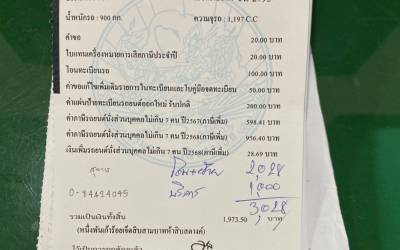 น้ำหนักรถ : 900 กก. ความจุรถ : 1,197 C.C
ค่าขอ 20.00 บาท
ใบแทนเครื่องหมายการเสียภาษีประจำปี 20.00 บาท
โอนทะเบียนรถ 100.00 บาท
ค่าขอแก้ไขเพิ่มเติมรายการในทะเบียนและใบคู่มือจดทะเบียน 50.00 บาท
ค่าแผ่นป้ายทะเบียนรถยนต์ออกใหม่ รับปกติ 200.00 บาท
ค่าภาษีรถยนต์นั่งส่วนบุคคลไม่เกิน 7 คน ปี2567(ภาษีเพิ่ม) 598.41 บาท
ค่าภาษีรถยนต์นั่งส่วนบุคคลไม่เกิน 7 คน ปี2568(ภาษีเพิ่ม) 956.40 บาท
เงินเพิ่มรถยนต์นั่งส่วนบุคคลไม่เกิน 7 คน ปี2568(ภาษีเพิ่ม) 28.69 บาท
2,028
0-84624095 บริการ 1,000
3028
รวมเป็นเงินทั้งสิ้น 1,973.50 บาท
(หนึ่งพันเก้าร้อยเจ็ดสิบสามบาทห้าสิบสตางค์)